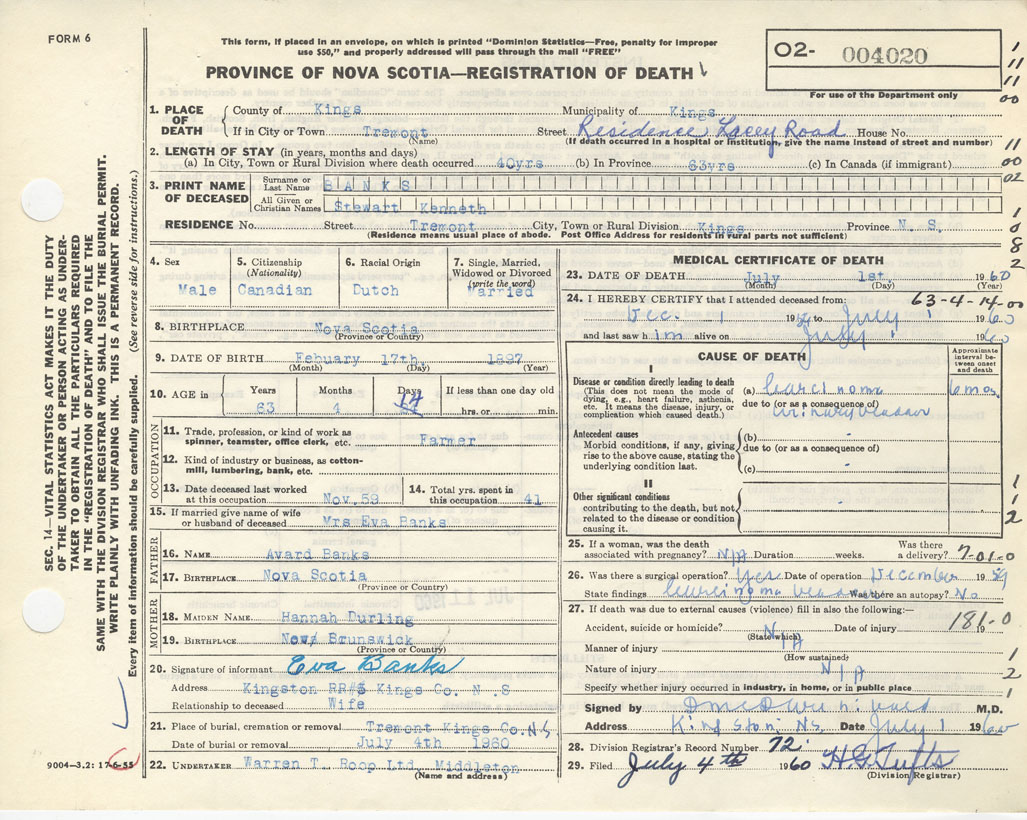 FORM 6
This form, if placed in an envelope, on which is printed "Dominion Statistics—Free, penalty for improper
use $50," and properly addressed will pass through the mail "FREE"
PROVINCE OF NOVA SCOTIA—REGISTRATION OF DEATH
O2- 004020
For use of the Department only
1. PLACE OF DEATH
County of Kings Municipality of Kings
If in City or Town Tremont Street Residence Lacey Road House No.
(Name) (If death occurred in a hospital or institution, give the name instead of street and number)
2. LENGTH OF STAY (in years, months and days)
(a) In City, Town or Rural Division where death occurred 40yrs (b) In Province 63yrs (c) In Canada (if immigrant)
3. PRINT NAME OF DECEASED
Surname or Last Name BANKS
All Given or Christian Names Stewart Kenneth
RESIDENCE No. Street Tremont City, Town or Rural Division Kings Province N. S.
(Residence means usual place of abode. Post Office Address for residents in rural parts not sufficient)
4. Sex Male
5. Citizenship (Nationality) Canadian
6. Racial Origin Dutch
7. Single, Married, Widowed or Divorced (write the word) Married
8. BIRTHPLACE Nova Scotia
(Province or Country)
9. DATE OF BIRTH Febuary 17th. 1897
(Month) (Day) (Year)
10. AGE in Years 63 Months 4 Days 14 If less than one day old hrs. or min.
OCCUPATION
11. Trade, profession, or kind of work as spinner, teamster, office clerk, etc. Farmer
12. Kind of industry or business, as cotton-mill, lumbering, bank, etc.
13. Date deceased last worked at this occupation Nov.59
14. Total yrs. spent in this occupation 41
15. If married give name of wife or husband of deceased Mrs Eva Banks
FATHER
16. NAME Avard Banks
17. BIRTHPLACE Nova Scotia
(Province or Country)
MOTHER
18. MAIDEN NAME Hannah Durling
19. BIRTHPLACE New Brunswick
(Province or Country)
20. Signature of informant Eva Banks
Address Kingston RR#3 Kings Co. N .S
Relationship to deceased Wife
21. Place of burial, cremation or removal Tremont Kings Co.N.S
Date of burial or removal July 4th 1960
22. UNDERTAKER Warren T. Roop Ltd. Middleton
(Name and address)
MEDICAL CERTIFICATE OF DEATH
23. DATE OF DEATH July 1st. 1960
(Month) (Day) (Year)
24. I HEREBY CERTIFY that I attended deceased from: 63-4-14-00
Dec. 1 19 to July 1 1960
and last saw h im alive on July 1 1960
CAUSE OF DEATH
Approximate interval between onset and death
I
Disease or condition directly leading to death
(This does not mean the mode of dying, e.g., heart failure, asthenia, etc. It means the disease, injury, or complication which caused death.)
(a) Carcinoma 6 mos.
due to (or as a consequence of)
urinary bladder
Antecedent causes
Morbid conditions, if any, giving rise to the above cause, stating the underlying condition last.
(b) -
due to (or as a consequence of)
(c) -
II
Other significant conditions
contributing to the death, but not related to the disease or condition causing it.
25. If a woman, was the death associated with pregnancy? N/A Duration weeks. Was there a delivery? 7-01-0
26. Was there a surgical operation? Yes Date of operation December 1959
State findings Carcinoma Was there an autopsy? No
27. If death was due to external causes (violence) fill in also the following:—
Accident, suicide or homicide? N/A Date of injury 19 181-0
(State which)
Manner of injury
(How sustained)
Nature of injury N/A
Specify whether injury occurred in industry, in home, or in public place
Signed by M.D.
Address Kingston, N.S. Date July 1 1960
28. Division Registrar's Record Number 72
29. Filed July 4th 1960 H.G. Tufts
(Division Registrar)
SEC. 14—VITAL STATISTICS ACT MAKES IT THE DUTY
OF THE UNDERTAKER OR PERSON ACTING AS UNDER-
TAKER TO OBTAIN ALL THE PARTICULARS REQUIRED
IN THE "REGISTRATION OF DEATH" AND TO FILE THE
SAME WITH THE DIVISION REGISTRAR WHO SHALL ISSUE THE BURIAL PERMIT.
WRITE PLAINLY WITH UNFADING INK. THIS IS A PERMANENT RECORD.
Every item of information should be carefully supplied. (See reverse side for instructions.)
9004—3,2: 17-6-55
11
11
11
00
11
00
02
1
0
8
2
1
1
2
1
2
1